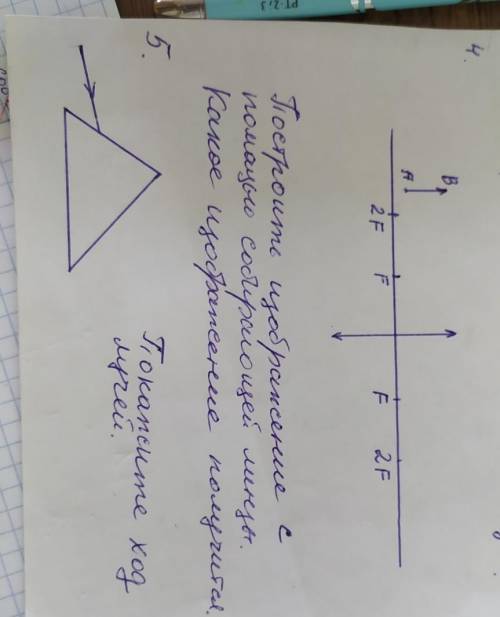 4.
B
A
2F
F
F
2F
Построить изображение с
помощью собирающей линзы.
Какое изображение получится.
5.
Покажите ход
лучей.